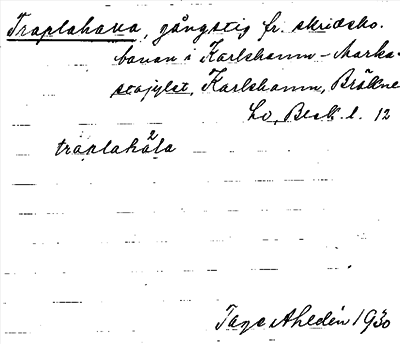 Traplahava, gångstig fr. skridsko-
banan i Karlshamn – Marka-
Karlshamn, Bräkne
Lo, Blek. l. 12
2
traplahåla
Tage Ahldén 1930